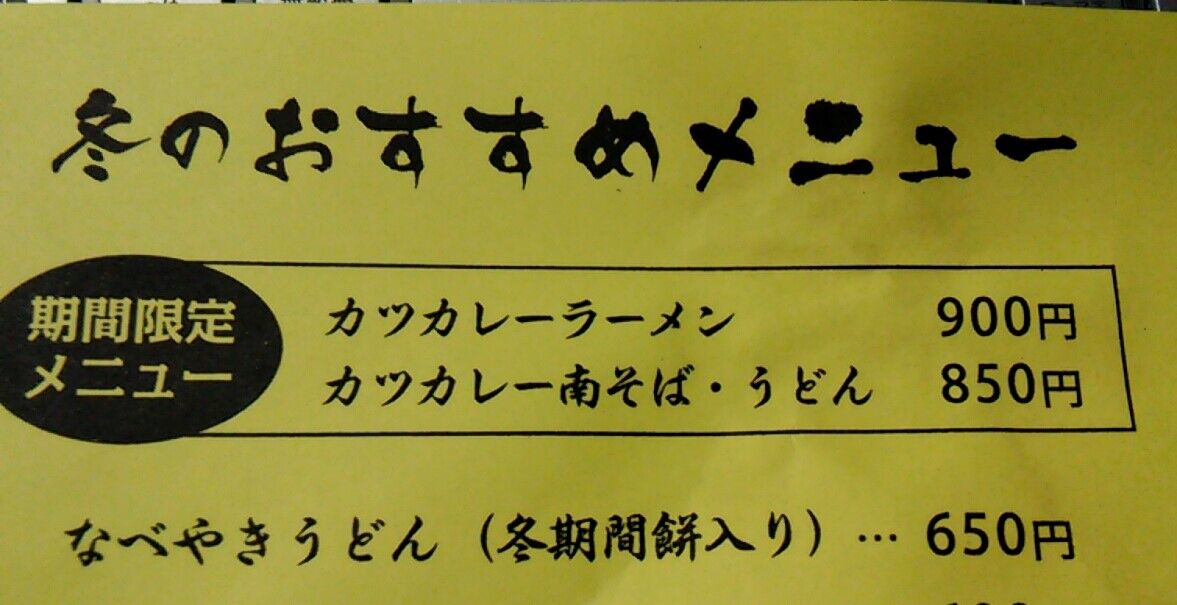 冬のおすすめメニュー
期間限定
メニュー
カツカレーラーメン 900円
カツカレー南そば・うどん 850円
なべやきうどん（冬期間餅入り）… 650円